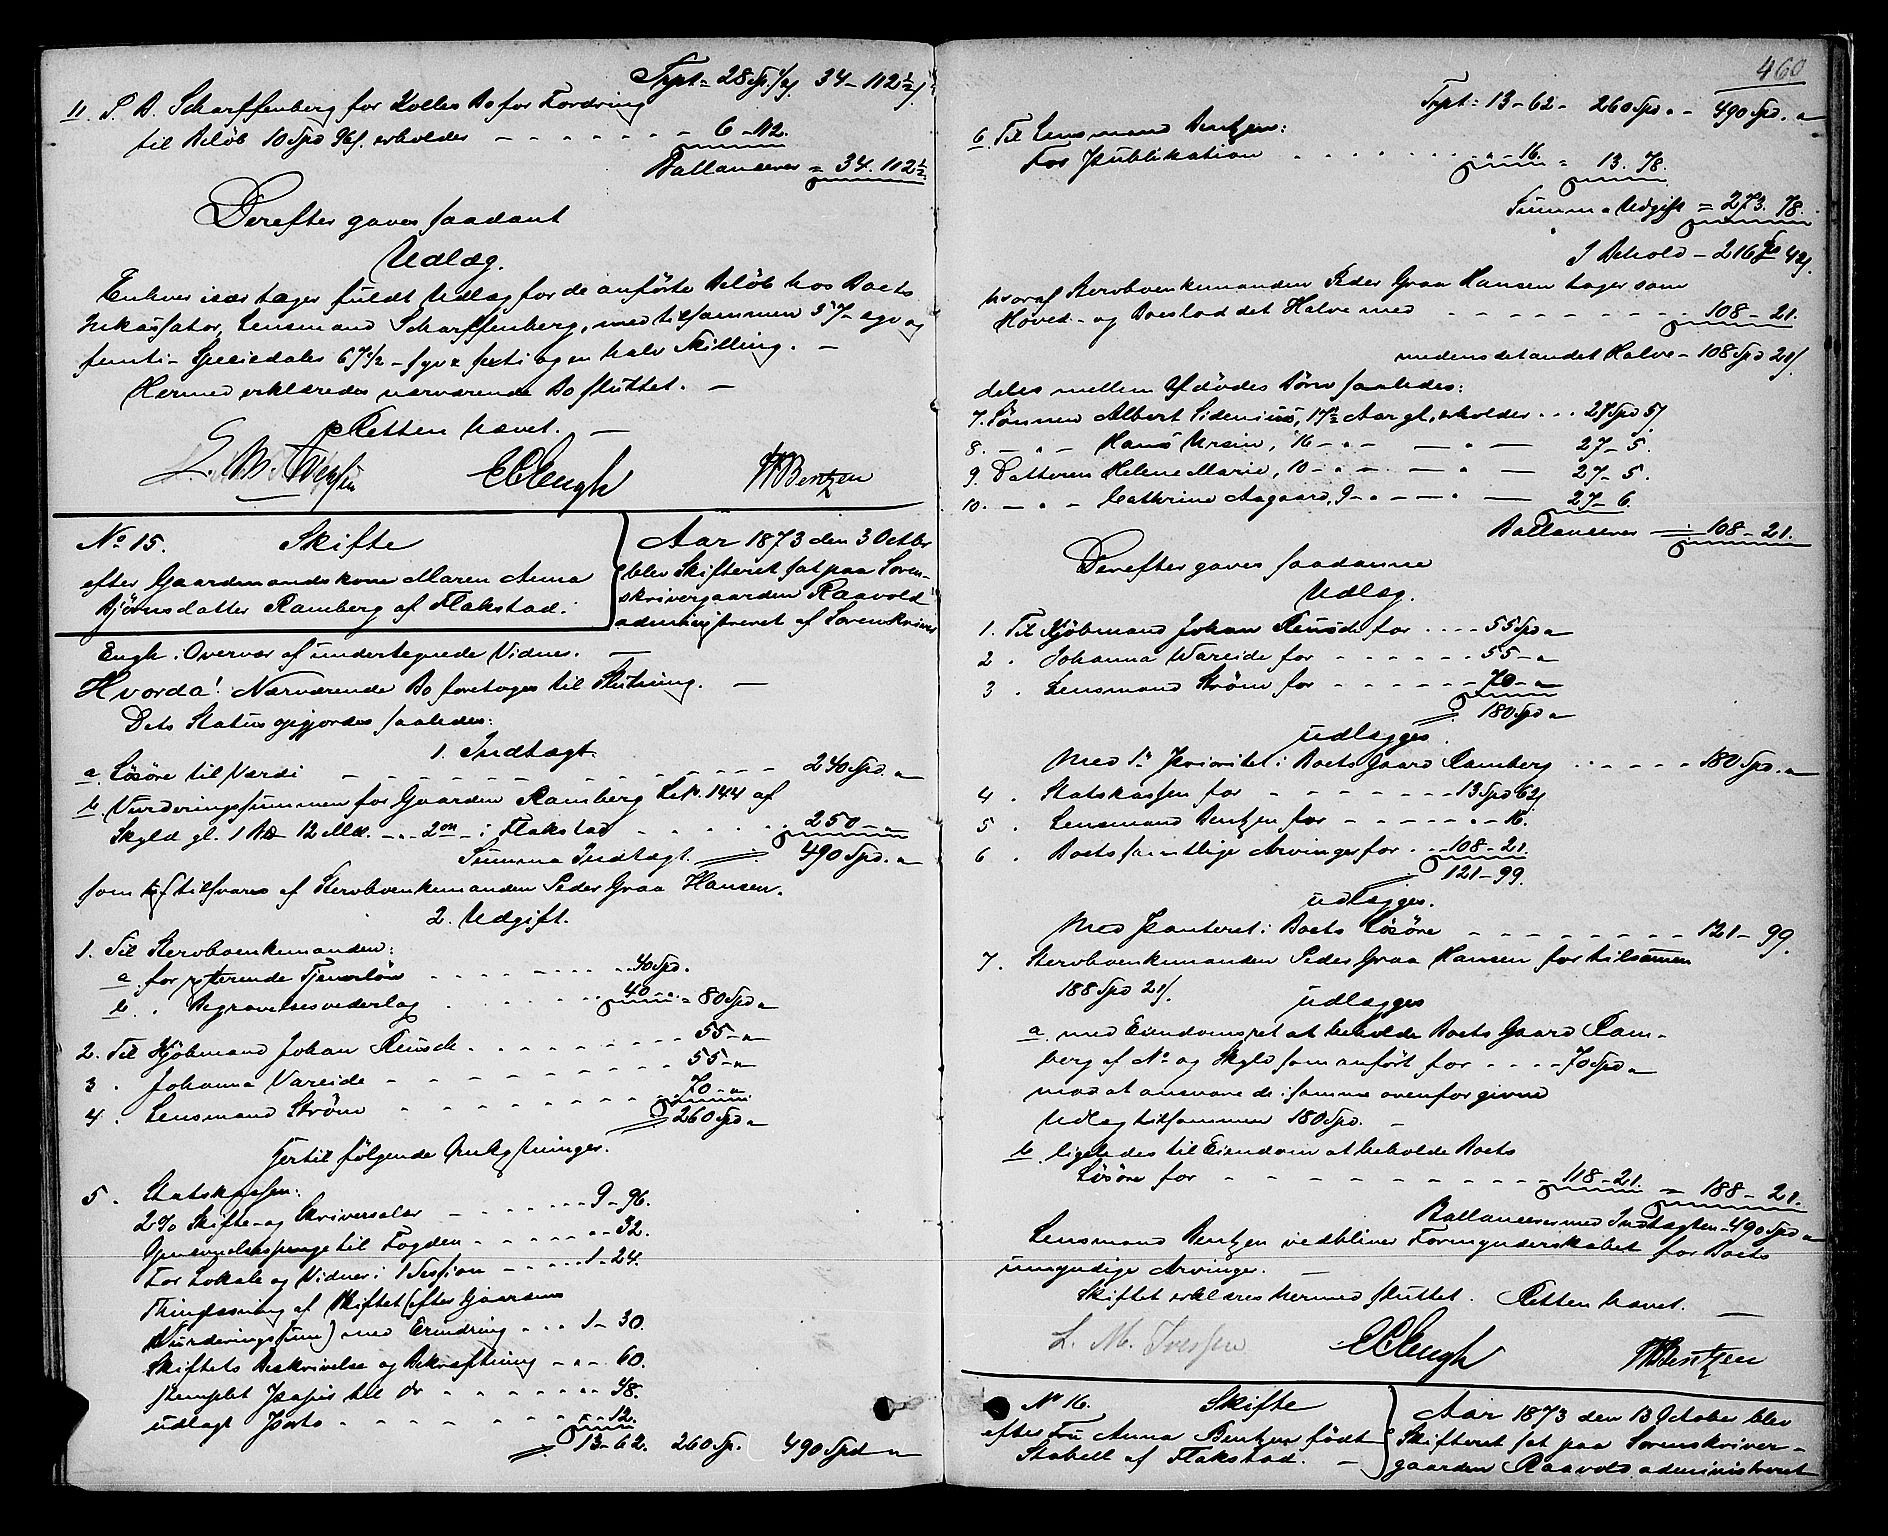 Trpt = 28 Sp. 1/4 34 - 112 1/2 ſ
11. P. A. Scharffenberg for Kolles Bo for Fordring
til Beløb 10 Spd 96ſ. erholdes - - - - - 6 - 112.
Ballancerer = 34. 112 1/2.
Derefter gaves saadant
Udlæg.
Enhver især tager fuldt Udlæg for de anførte Beløb hos Boets
Inkassator, Lensmand Scharffenberg, med tilsammen 57 - syv og
femti - Speciedaler 67 1/2 - syv sexti og en halv Skilling. -
Hermed erklæredes nærværende Bo sluttet. -
Retten hævet. -
L. M. Iversen EC Eengh W Bentzen
No 15. Skifte
efter Gaardmandskone Maren Anna
Bjørnsdatter Ramberg af Flakstad.
Aar 1873 den 3 Octbr
blev Skifteret sat paa Soren-
skrivergaarden Raavold
administreret af Sorenskriver
Engh i Overvær af undertegnede Vidner. -
Hvorda! Nærværende Bo foretoges til Slutning. -
Dets Status opgjordes saaledes:
1. Indtægt.
a Løsøre til Værdi - - - - - 240 Spd. "
b Vurderingssummen for Gaarden Ramberg L.No. 144 af
Skyld gl. 1 Bd 12 Mk. - .. 2 on - i Flakstad - - - - 250 - "
Summa Indtægt. 490 Spd. "
som tilsvares af Stervboenkemanden Peder Graa Hansen.
2. Udgift.
1. Til Stervboenkemanden:
a for resterende Tjenerløn - - - - 40 Spd.
b . Begravelsesvederlag - - - - 40 .. - = 80 Spd "
2. Til Kjøbmand Johan Reusch - - - - 55 - "
3 . Johanna Vareide - - - - 55 - "
4 . Lensmand Strøm - - - - 70 - "
260 Spd "
hertil følgende Omkostninger.
5 . Statskassen:
2% Skifte- og Skriversalær - - - - 9 - 96.
Opnævnelsespenge til Fogden - - - - " - 32.
For Lokale og Vidner i 1 Session - - - - 1 - 24.
Thinglæsning af Skiftet (efter Gaardens
Vurderingssum) med Erindring - - - 1 - 30.
Skiftets Beskrivelse og Bekræftning - " - 60.
Stemplet Papir til do - - - - " - 48.
udlagt Porto - - - - " - 12.
13 - 62. 260 Sp. 490 Spd "
460
Trpt = 13 - 62 - 260 Spd " - 490 Spd. "
6. Til Lensmand Bentzen:
For Publikation - - - - " - 16. = 13. 78.
Summa Udgift = 273. 78.
I Behold - 216 Spd 42ſ.
hvoraf Stervboenkemanden Peder Graa Hansen tager som
Hoved- og Boeslod det Halve med - - - - 108 - 21.
medens det andet Halve - 108 Spd 21ſ.
deles mellem Afdødes Børn saaledes:
7. Sønnen Albert Sidenius, 17 1/2 Aar gl., erholder ... 27 Spd 5ſ.
8. - " - Hans Ursin, 16 - " - - " - 27 - 5.
9. Datteren Helene Marie, 10 - " - - " - 27 - 5.
10. - " - Cathrine Aagaard, 9 - " - - " - 27 - 6.
Ballancerer = 108 - 21.
Derefter gaves saadanne
Udlæg.
1. Til Kjøbmand Johan Reusch for .... 55 Spd "
2 . Johanna Wareide for - - - - 55 - "
3 . Lensmand Strøm for - - - - 70 - "
180 Spd "
udlægges
Med 1ste Prioritet i Boets Gaard Ramberg - - - - 180 Spd. "
4 . Statskassen for - - - - 13 Spd 62ſ
5 . Lensmand Bentzen for - - - - " - 16.
6 . Boets samtlige Arvinger for - - - 108 - 21.
121 - 99.
udlægges.
Med Panteret i Boets Løsøre - - - - 121 - 99.
7 . Stervboenkemanden Peder Graa Hansen for tilsammen
188 Spd 21ſ. udlægges
a med Eiendomsret at beholde Boets Gaard Ram-
berg af No og Skyld som anført for - - - - 70 Spd "
mod at ansvare de i samme ovenfor givne
Udlæg tilsammen 180 Spd. -
b ligeledes til Eiendom at beholde Boets
Løsøre for - - - - 118 - 21. = 188 - 21.
Ballancerer med Indtægten - 490 Spd "
Lensmand Bentzen vedbliver Formynderskabet for Boets
umyndige Arvinger. -
Skiftet erklæres hermed sluttet. Retten hævet. -
L. M. Iversen EC Eengh W Bentzen
No 16. Skifte
efter Fru Anna Bentzen født
Stabell af Flakstad. -
Aar 1873 den 13 October blev
Skifteret sat paa Sorenskriver-
gaarden Raavold administreret